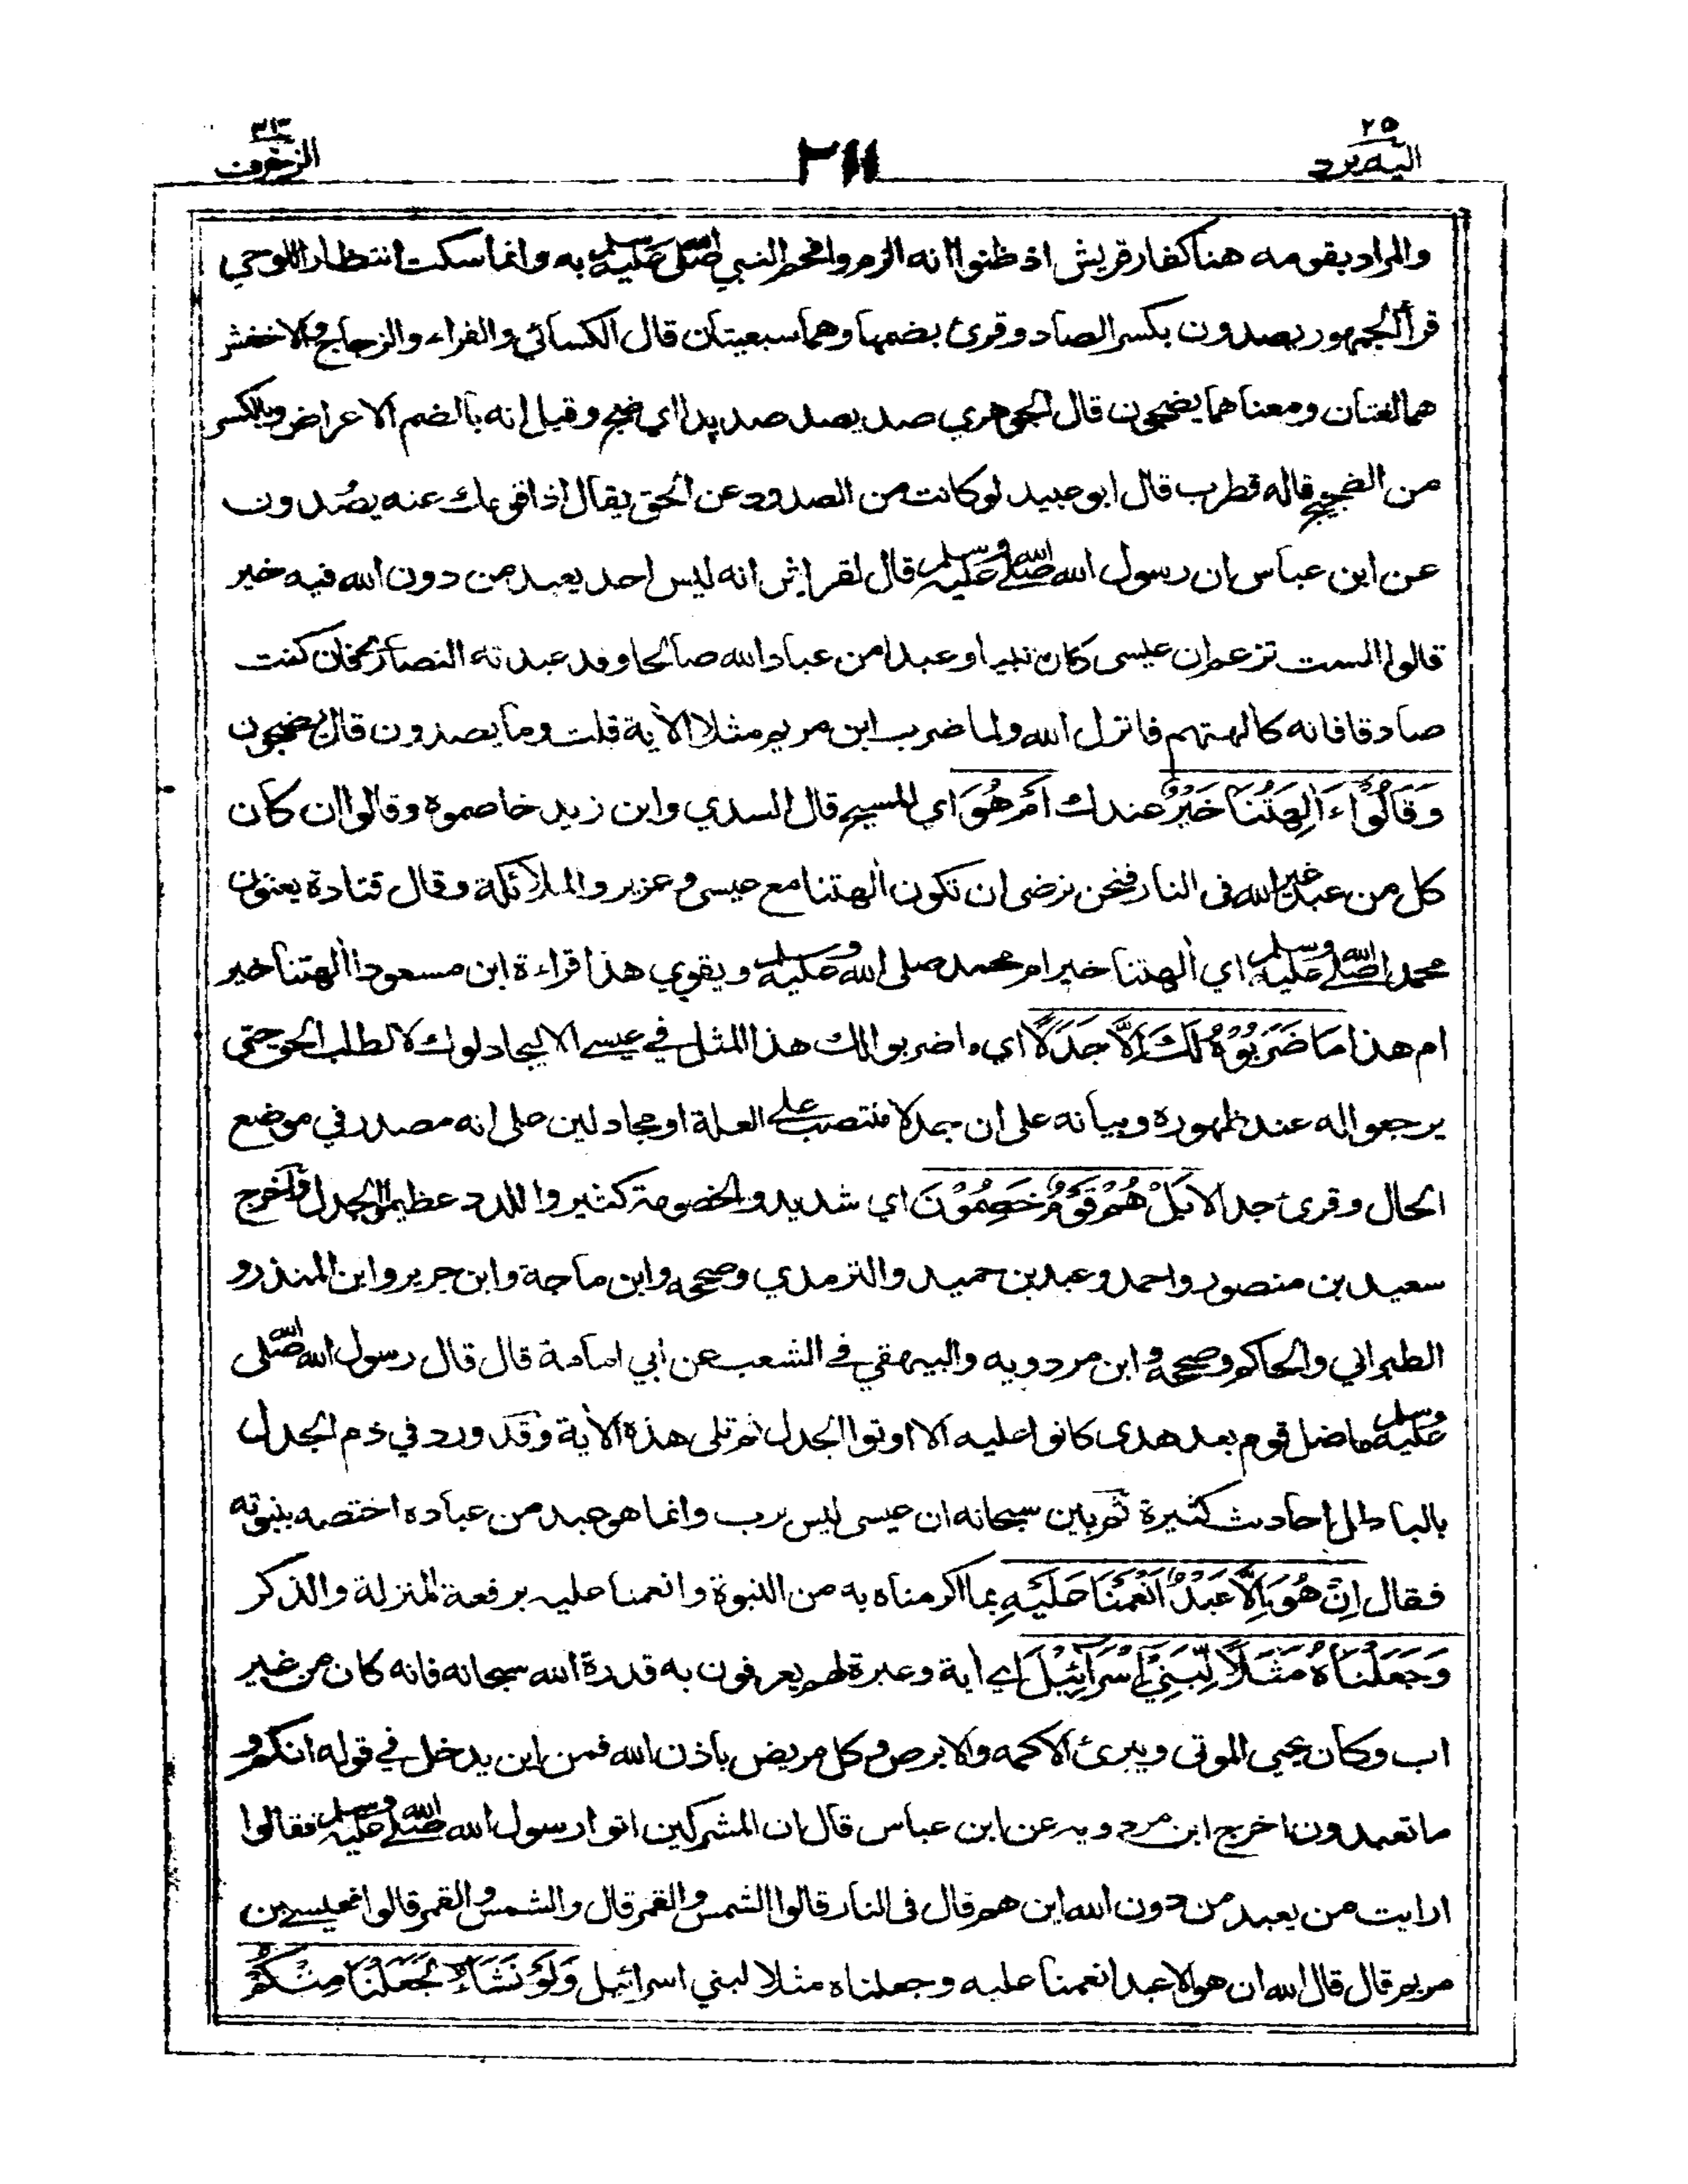 ٢٥
اليه يرد
٢١١
٤٣
الزخرف
والمراد بقومه هنا كفار قريش اذ ظنوا انه الزم وافحم النبي صلى الله عليه وسلم به وانما سكت انتظارا للوحي
قرأ الجمهور يصدون بكسر الصاد وقرئ بضمها وهما سبعيتان قال الكسائي والفراء والزجاج والاخفش
هما لغتان ومعناهما يضجون قال الجوهري صد يصد صديدا اي ضج وقيل انه بالضم الاعراض وبالكسر
من الضجيج قاله قطرب قال ابو عبيد لو كانت من الصدود عن الحق يقال اذا قومك عنه يصدون
عن ابن عباس ان رسول الله صلى الله عليه وسلم قال لقريش انه ليس احد يعبد من دون الله فيه خير
قالوا الست تزعم ان عيسى كان نبيا وعبدا من عباد الله صالحا وقد عبدته النصارى فان كنت
صادقا فانه كالهتهم فانزل الله ولما ضرب ابن مريم مثلا الأية قلت وما يصدون قال يضجون
وَقَالُوْا ءَاٰلِهَتُنَا خَيْرٌ عندك اَمْ هُوَ اي المسيح قال السدي وابن زيد خاصموه وقالوا ان كان
كل من عبد غير الله فى النار فنحن نرضى ان تكون ألهتنا مع عيسى وعزير والملائكة وقال قتادة يعنون
محمدا صلى الله عليه وسلم اي ألهتنا خير ام محمد صلى الله عليه وسلم ويقوي هذا قراءة ابن مسعود أألهتنا خير
ام هذا مَا ضَرَبُوْهُ لَكَ اِلَّا جَدَلًا اي ما ضربوا لك هذا المثل في عيسى الا ليجادلوك لا لطلب الحق حتى
يرجعوا اله عند ظهوره وبيانه على ان جدلا منتصب على العلة او مجادلين على انه مصدر في موضع
الحال وقرئ جدالا بَلْ هُمْ قَوْمٌ خَصِمُوْنَ اي شديدو الخصومة كثيروا اللدد عظيموا الجدل واخرج
سعيد بن منصور واحمد وعبد بن حميد والترمذي وصححه وابن ماجة وابن جرير وابن المنذر و
الطبراني والحاكم وصححه وابن مردويه والبيهقي في الشعب عن ابي امامة قال قال رسول الله صلى الله
عليه وسلم ما ضل قوم بعد هدى كانوا عليه الا اوتوا الجدل ثم تلى هذه الأية وقد ورد في ذم الجدل
بالباطل احاديث كثيرة ثم بين سبحانه ان عيسى ليس برب وانما هو عبد من عباده اختصه بنبوته
فقال اِنْ هُوَ اِلَّا عَبْدٌ اَنْعَمْنَا عَلَيْهِ بما اكرمناه به من النبوة وانعمنا عليه برفعة المنزلة والذكر
وَجَعَلْنَاهُ مَثَلًا لِّبَنِيْ اِسْرَآئِيْلَ اي أية وعبرة لهم يعرفون به قدرة الله سبحانه فانه كان من غير
اب وكان يحيى الموتى ويبرئ الاكمه والابرص وكل مريض باذن الله فمن اين يدخل في قوله انكم و
ما تعبدون اخرج ابن مردويه عن ابن عباس قال ان المشركين اتوا رسول الله صلى الله عليه وسلم فقالوا
ارايت من يعبد من دون الله اين هم قال فى النار قالوا الشمس والقمر قال والشمس والقمر قالوا فعيسى بن
مريم قال قال الله ان هو الا عبد انعمنا عليه وجعلناه مثلا لبني اسرائيل وَلَوْ نَشَآءُ لَجَعَلْنَا مِنْكُمْ